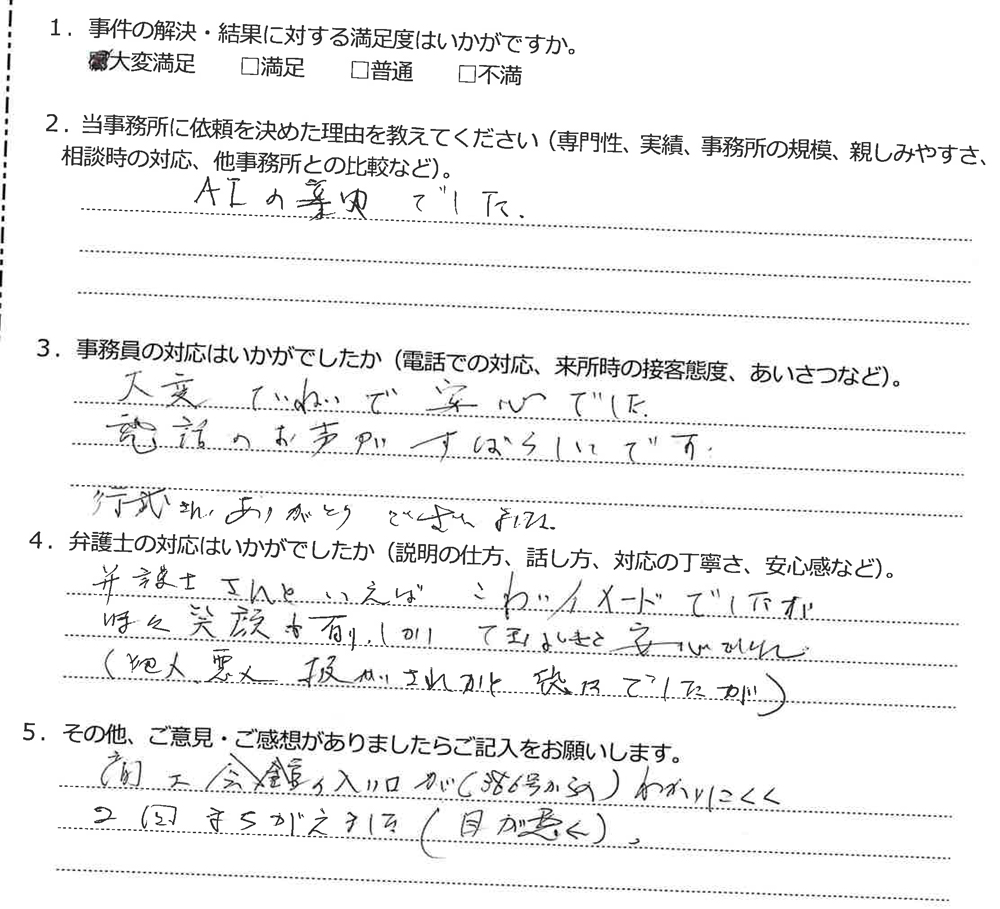 1．事件の解決・結果に対する満足度はいかがですか。
大変満足　□満足　□普通　□不満
2．当事務所に依頼を決めた理由を教えてください（専門性、実績、事務所の規模、親しみやすさ、
相談時の対応、他事務所との比較など）。
AIの でした.
3．事務員の対応はいかがでしたか（電話での対応、来所時の接客態度、あいさつなど）。
大変 ていねいで 安心でした.
電話のお声が すばらしいです.
さん ありがとうございました.
4．弁護士の対応はいかがでしたか（説明の仕方、話し方、対応の丁寧さ、安心感など）。
弁護士さんといえば こわいイメードでしたが
時々笑顔も有り, 安心
( 悪人 扱いされるかと でしたが)
5．その他、ご意見・ご感想がありましたらご記入をお願いします。
会館の入り口が( 号からの)わかりにくく
2回まちがえました(目が悪く)、